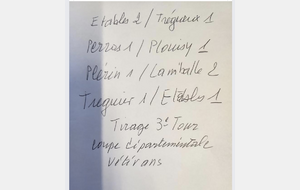 Etables 2 / Trégueux 1
Perros 1 / Plouisy 1
Plérin 1 / Lamballe 2
Treguier 1 / Etables 1
Tirage 3e Tour
coupe départementale
vétérans